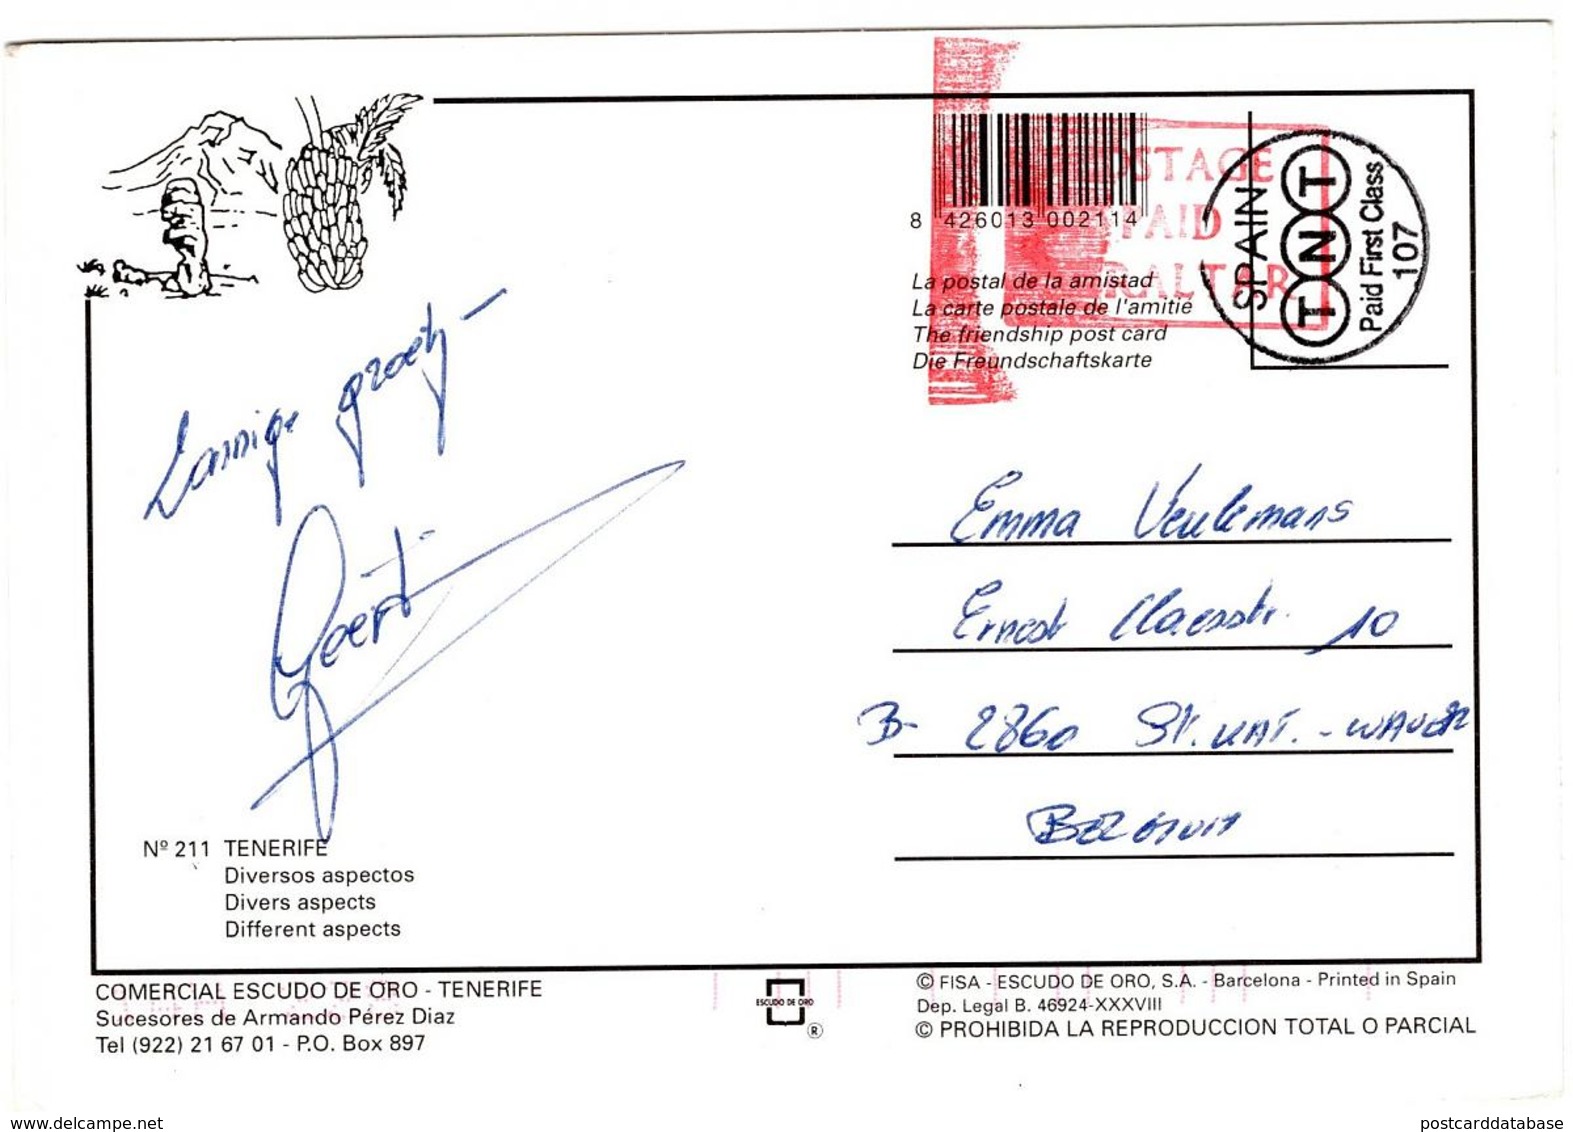 8 426013 002114
POSTAGE
PAID
GIBRALTAR
SPAIN
TNT
Paid First Class
107
La postal de la amistad
La carte postale de l'amitié
The friendship post card
Die Freundschaftskarte
Zonnige groetj
Geert
Emma Veulemans
Ernest Claesstr. 10
B- 2860 St. KAT. - WAVER
BELGIUM
Nº 211 TENERIFE
Diversos aspectos
Divers aspects
Different aspects
COMERCIAL ESCUDO DE ORO - TENERIFE
Sucesores de Armando Pérez Diaz
Tel (922) 21 67 01 - P.O. Box 897
ESCUDO DE ORO
®
© FISA - ESCUDO DE ORO, S.A. - Barcelona - Printed in Spain
Dep. Legal B. 46924-XXXVIII
© PROHIBIDA LA REPRODUCCION TOTAL O PARCIAL
www.delcampe.net
postcarddatabase